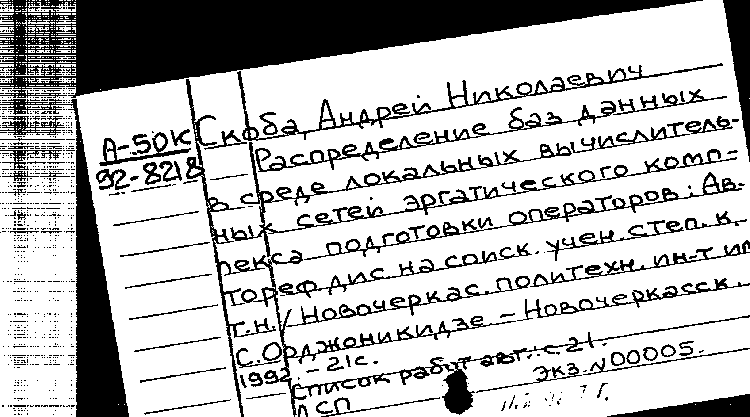 А-50К Скоба, Андрей Николаевич
92-8218 Распределение баз данных
в среде локальных вычислитель-
ных сетей эргатического комп-
лекса подготовки операторов: Ав-
тореф. дис. на соиск. учен. степ. к.
т.н. / Новочеркас. политехн. ин-т им
С. Орджоникидзе - Новочеркасск.
1992. - 21с.
Список работ авт.: с. 21.
ДСП Экз. N 00005.